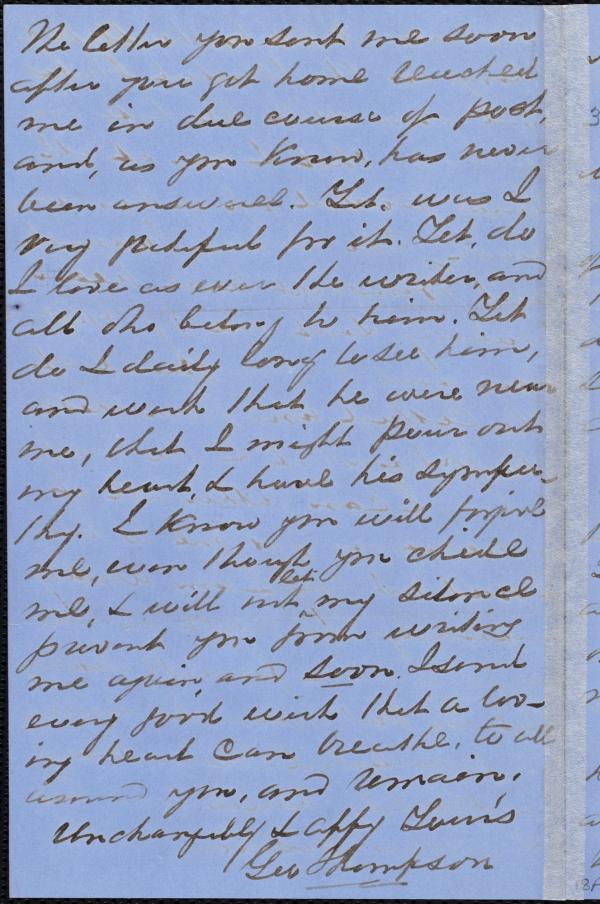 The letter you sent me soon
after you got home reached
me in due course of post,
and, as you know, has never
been answered. Yet, was I
very grateful for it. Yet, do
I love as ever the writer, and
all who belong to him. Yet
do I daily long to see him,
and wish that he were near
me, that I might pour out
my heart, & have his sympa-
thy. I know you will forgive
me, even though you chide
me, & will not let my silence
prevent you from writing
me again, and soon. I send
every good wish that a lov-
ing heart can breathe, to all
around you, and remain,
Unchangeably & affy Yours
Geo Thompson